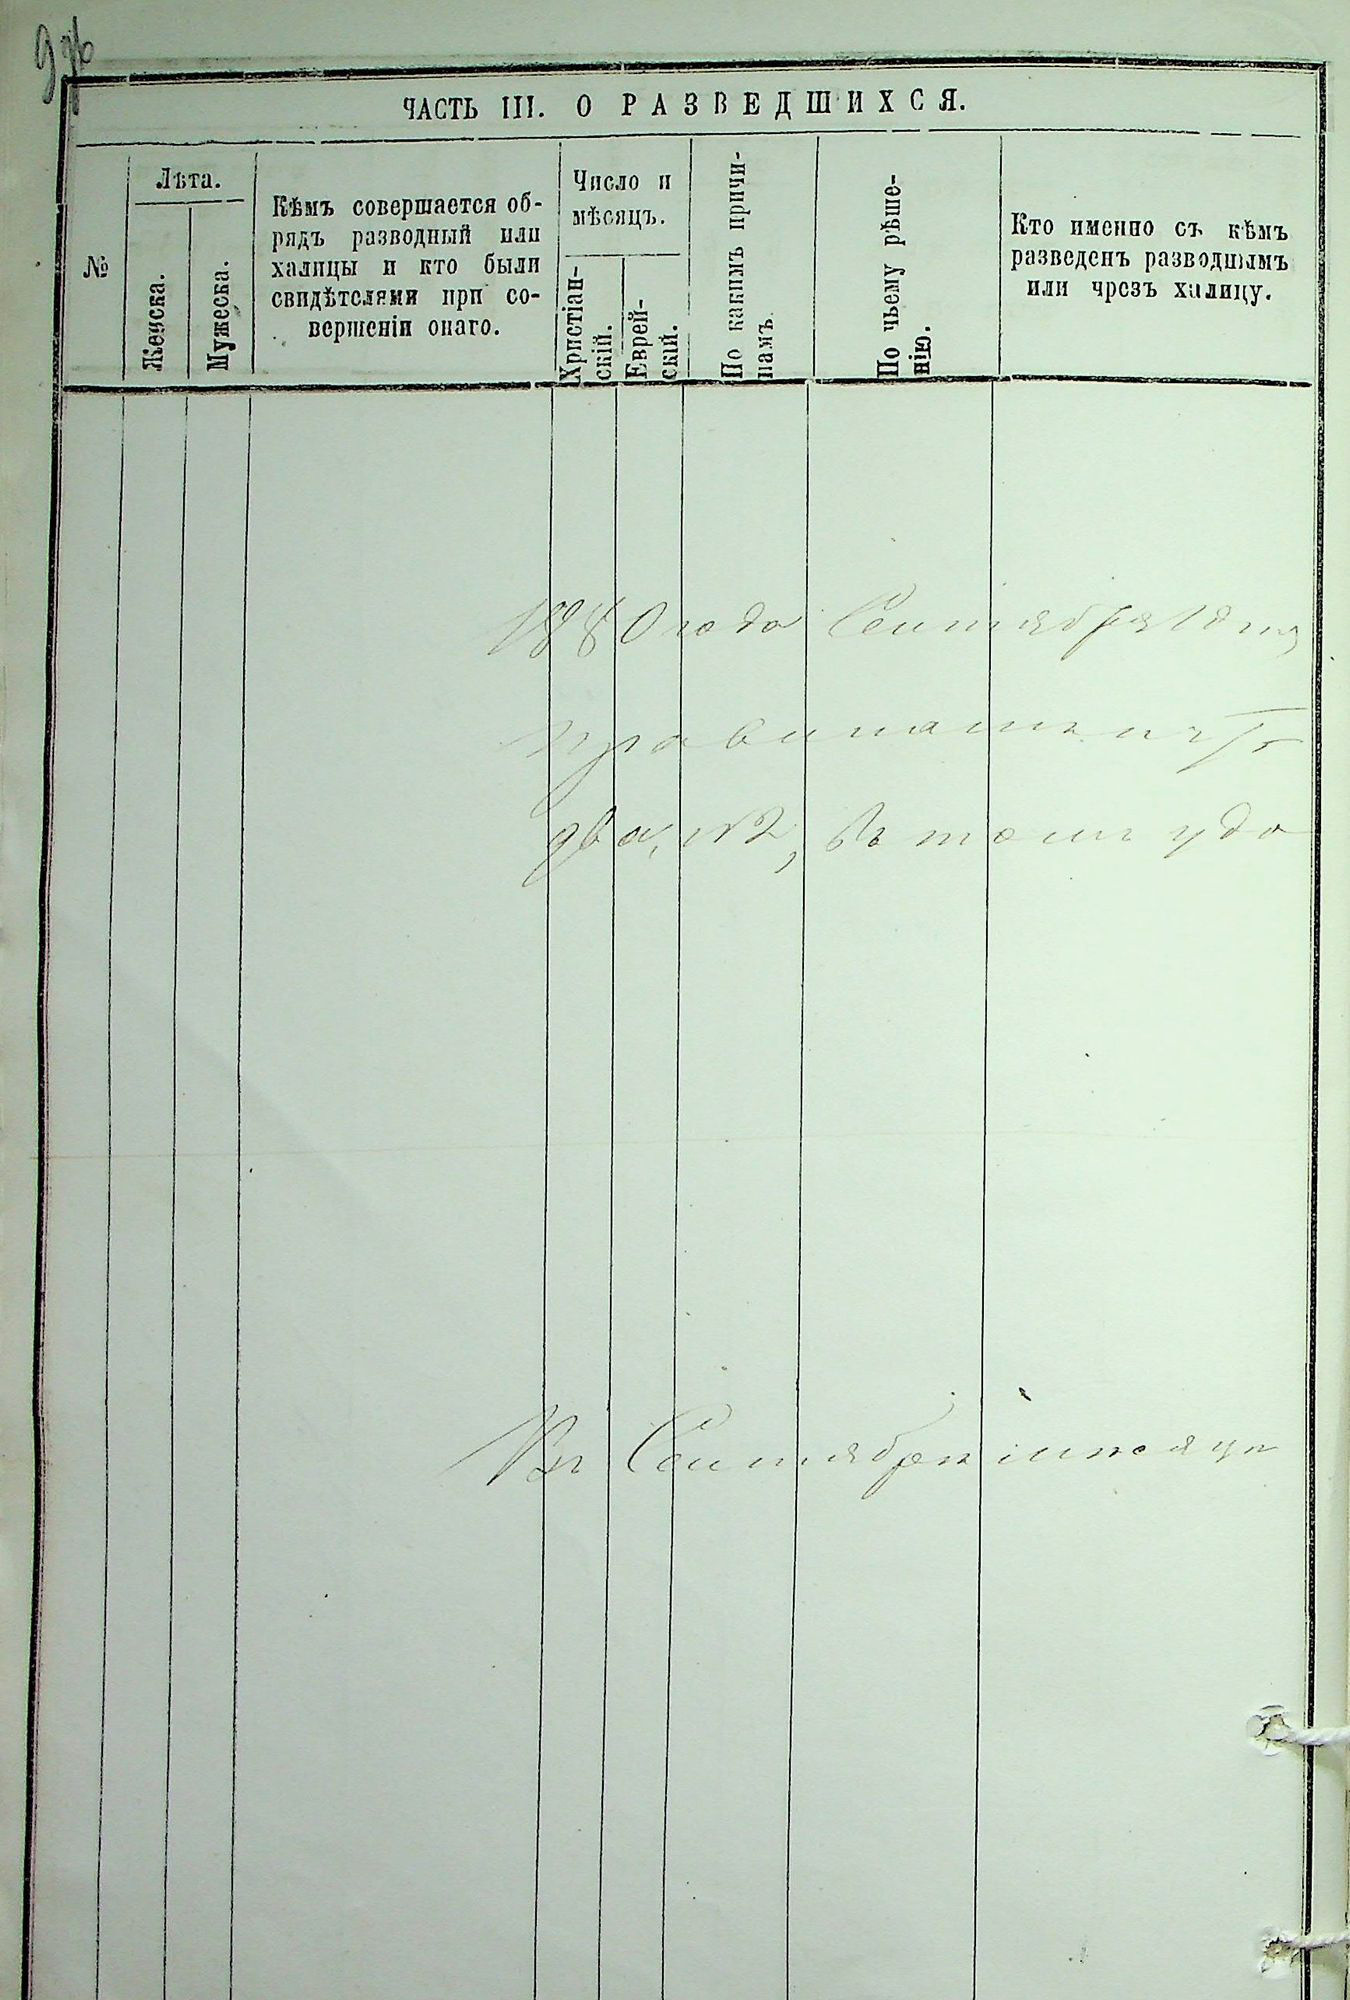 9 об
ЧАСТЬ III. О РАЗВЕДШИХСЯ.
№
Лѣта.
Женска.
Мужеска.
Кѣмъ совершается об-
рядъ разводный или
халицы и кто были
свидѣтелями при со-
вершеніи онаго.
Число и
мѣсяцъ.
Христіан-
скій.
Еврей-
скій.
По какимъ причи-
намъ.
По чьему рѣше-
нію.
Кто именно съ кѣмъ
разведенъ разводнымъ
или чрезъ халицу.
1880 года Сентября 1 дня
два, №2, въ томъ удо
Въ Сентябрѣ мѣсяцѣ